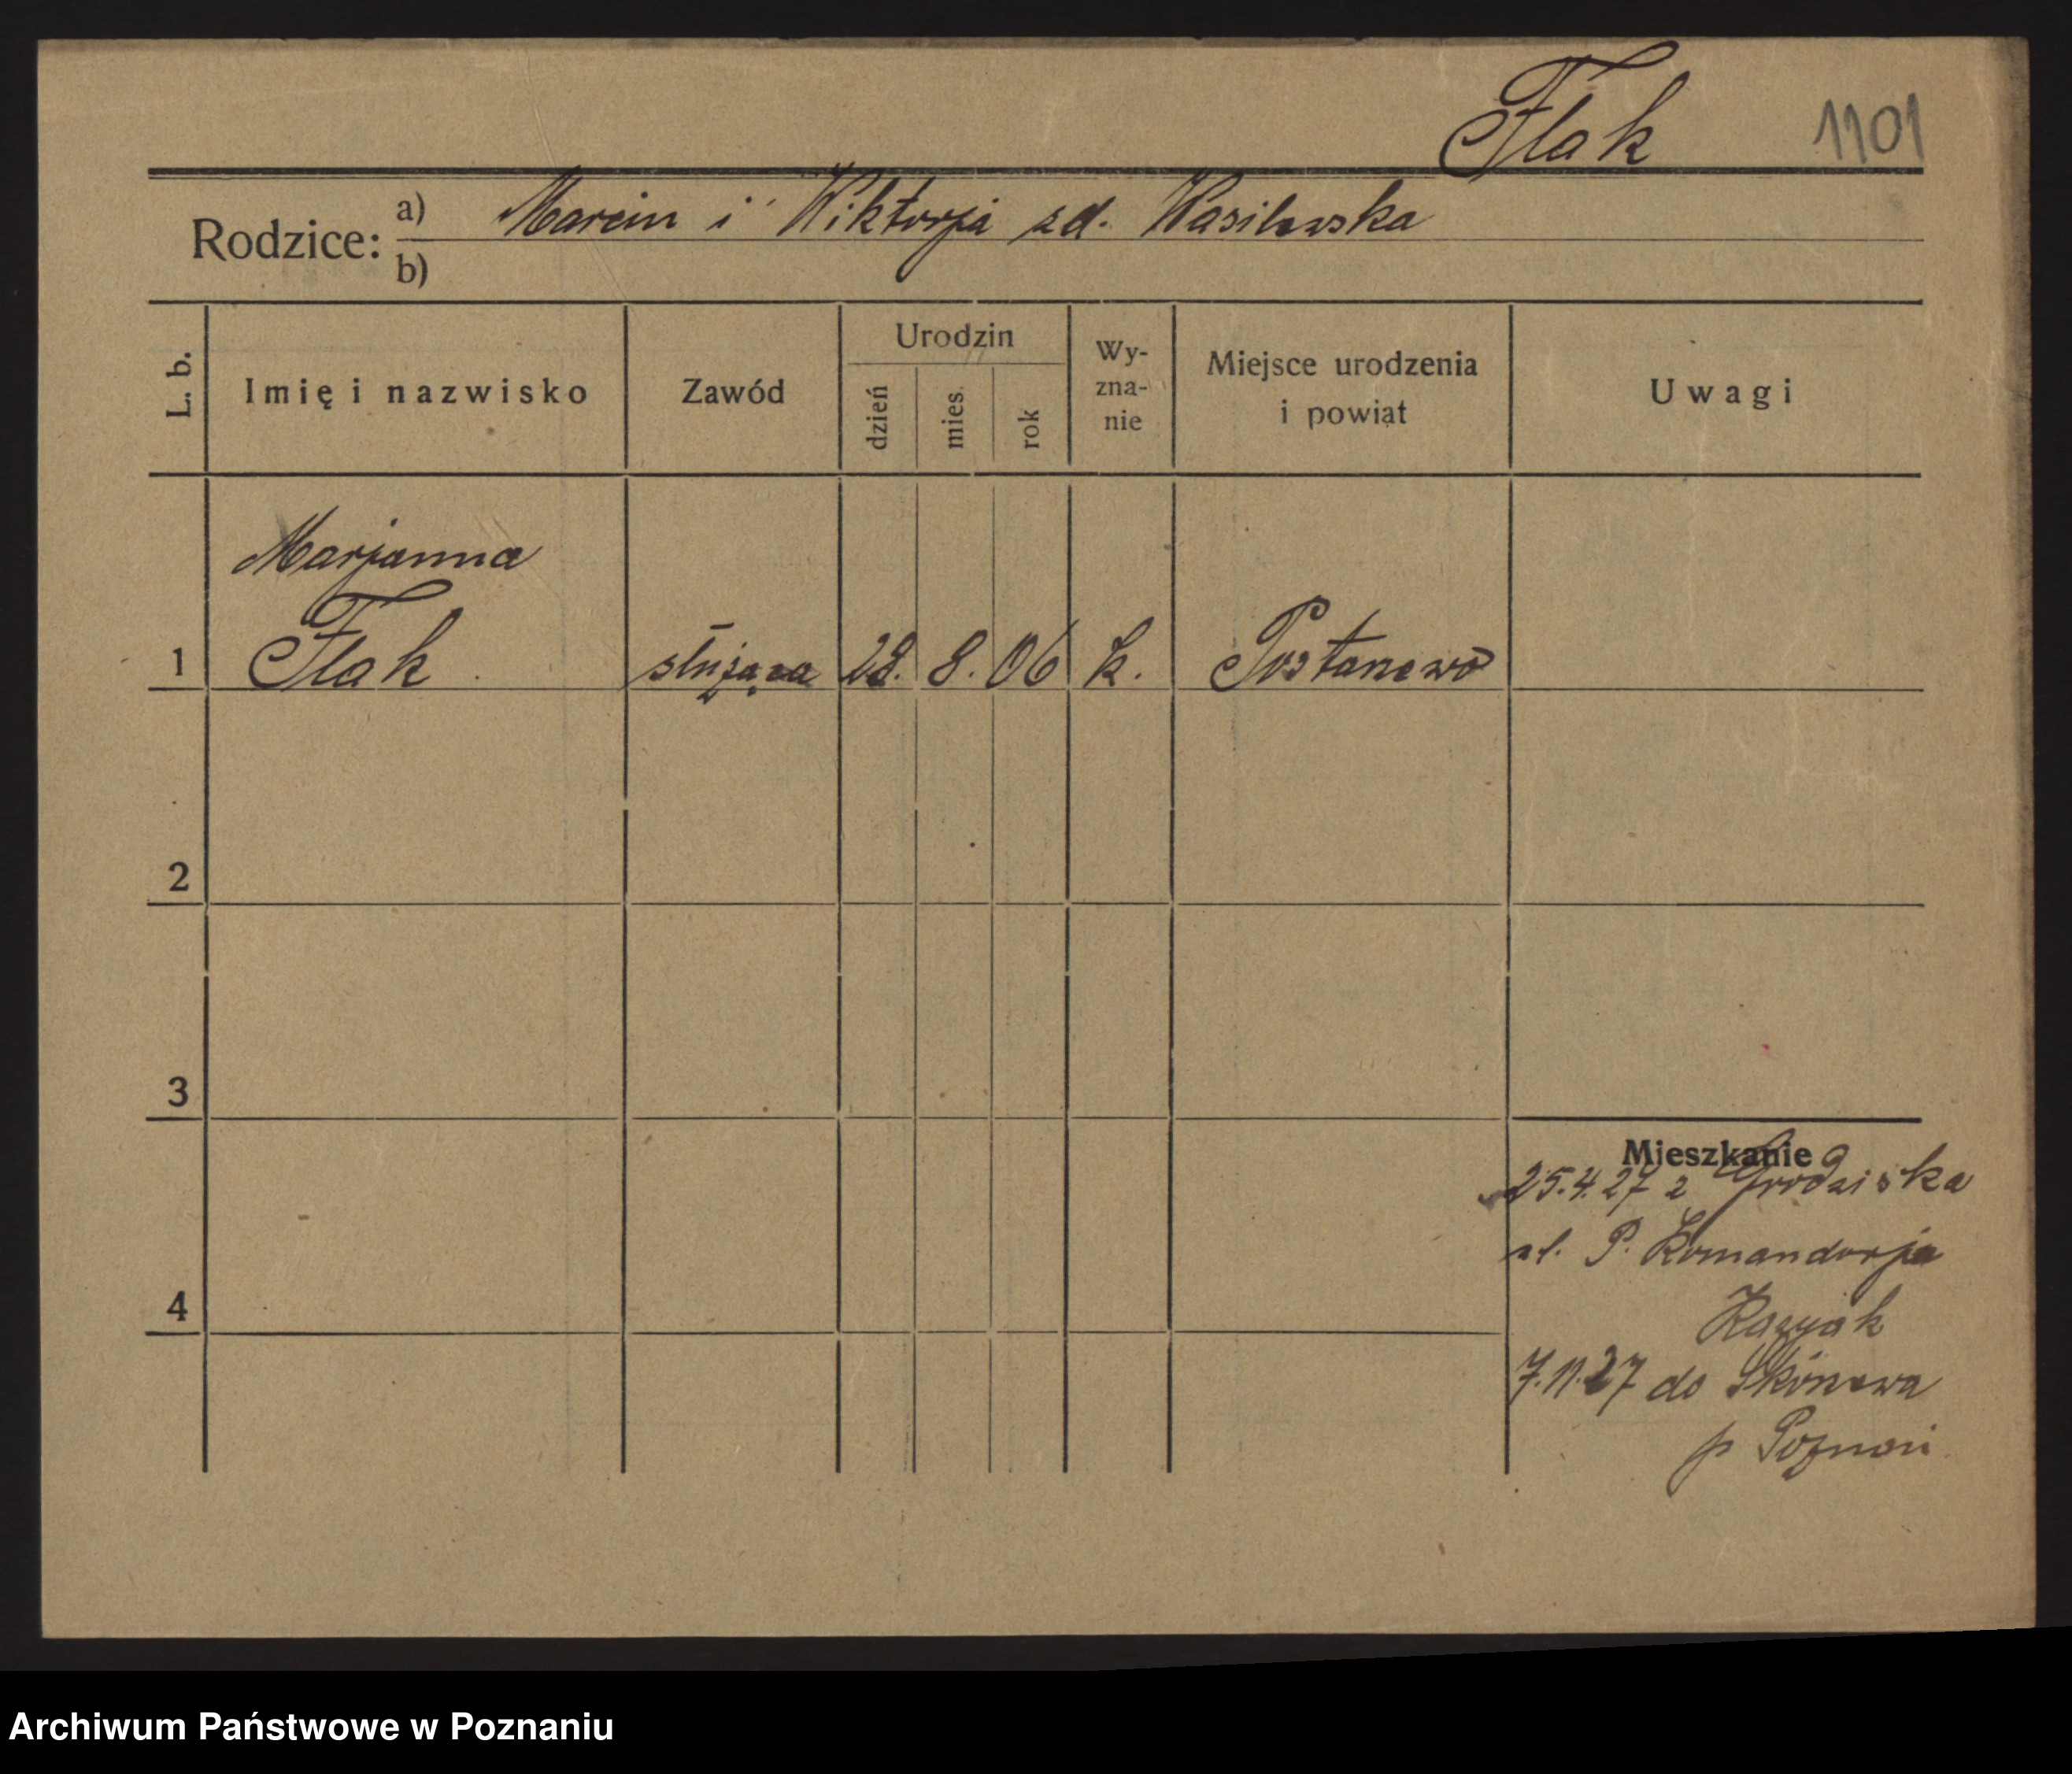 Flak 1101
Rodzice: a) Marcin i Wiktorja zd. Wasilewska
b)
L. b. Imię i nazwisko Zawód Urodzin dzień mies. rok Wy-zna-nie Miejsce urodzenia i powiat Uwagi
Marjanna
1 Flak służąca 28. 8. 06 k. Postanowo
2
3
Mieszkanie
25.4.27 z Grodziska
ul. P. Komandorja
4
7.11.27 do
p Poznań
Archiwum Państwowe w Poznaniu